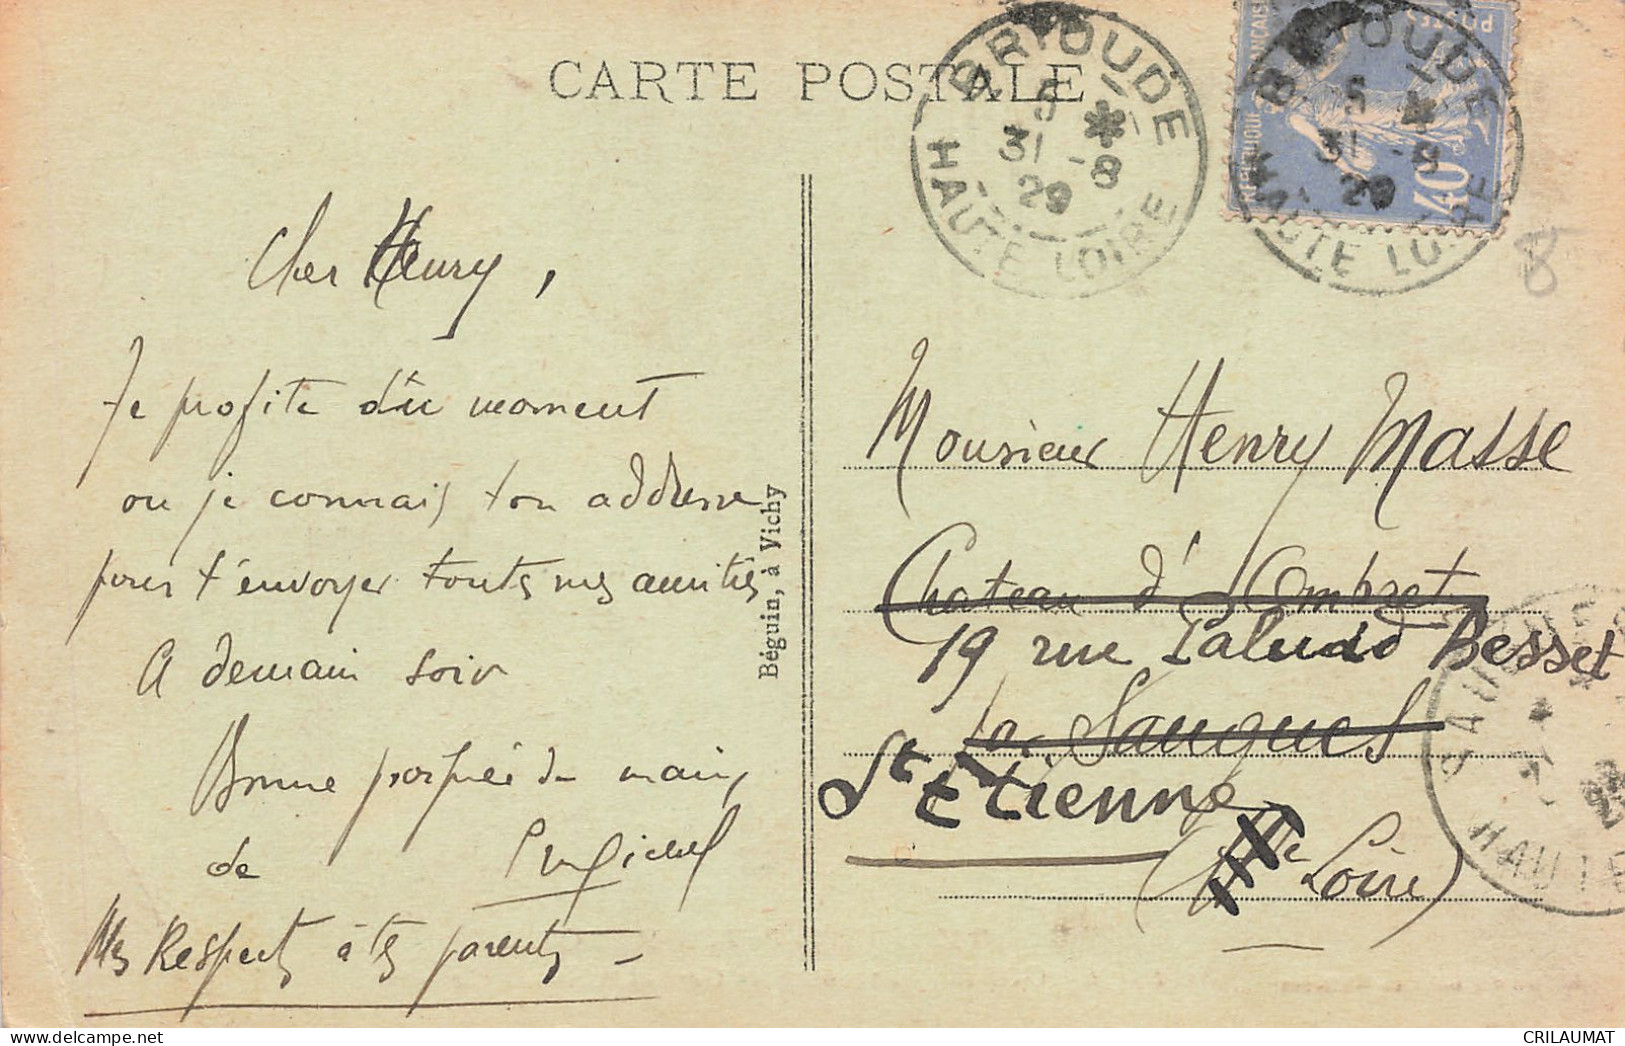 CARTE POSTALE
BRIOUDE
5 *
31 -8
29
HAUTE LOIRE
BRIOUDE
5 *
31 -8
29
HAUTE LOIRE
POSTES
REPUBLIQUE FRANÇAISE
40c
8
Cher Henry,
Je profite du moment
ou je connais ton addresse
pour t'envoyer toutes mes amitiés
A demain soir
Bonne poignée de main,
de
Mes Respects à tes parents —
Béguin, à Vichy
Monsieur Henry Masse
Chateau d'Ombret
19 rue Paluat Besset
par Saugues
St Etienne
(Hte Loire)
SAUGUES
HAUTE
CRILAUMAT